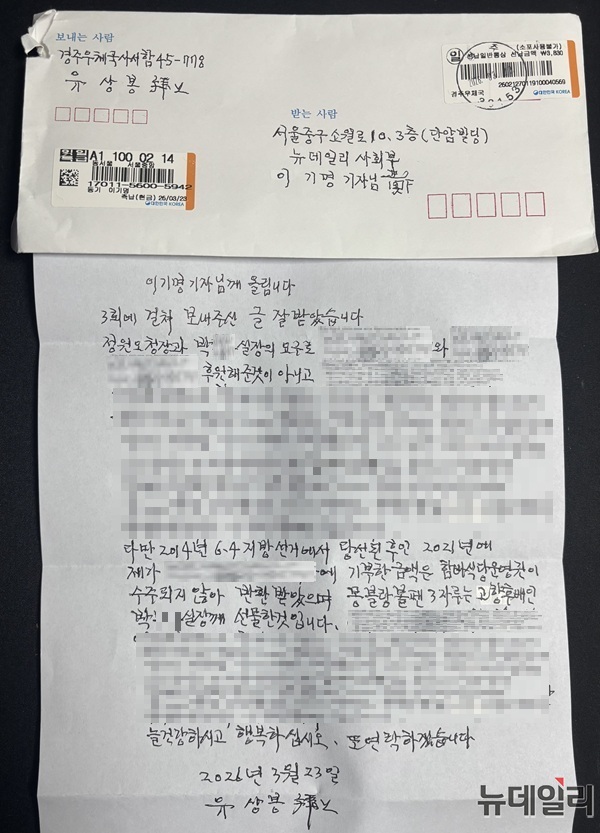 보내는 사람
경주우체국사서함 45-778
유 상 봉 拜上
일
주
(소포사용불가)
선납일반통상 선납금액 ₩3,830
26021270119100040569
경주우체국
대한민국 KOREA
받는 사람
서울중구소월로 10. 3층 (단암빌딩)
뉴데일리 사회부
이 기 명 기자님
A1 100 02 14
동서울
17011-5600-5942
등기 이기명
촉납(현금) 26/03/23
대한민국 KOREA
이기명기자님께 올립니다
3회에 걸쳐 보내주신 글 잘 받았습니다
정원오청장과 박 실장의 요구로 와
후원해준것이 아니고
다만 2014년 6.4 지방선거에서 당선된후인 2021년에
제가 에 기부한 금액은 함바식당운영권이
수주되지 않아 반환 받았으며 몽블랑볼펜 3자루는 고향후배인
박 실장께 선물한것입니다.
늘건강하시고 행복하십시오. 또연락하겠습니다
2026년 3월 23일
유 상봉 拜上
뉴데일리